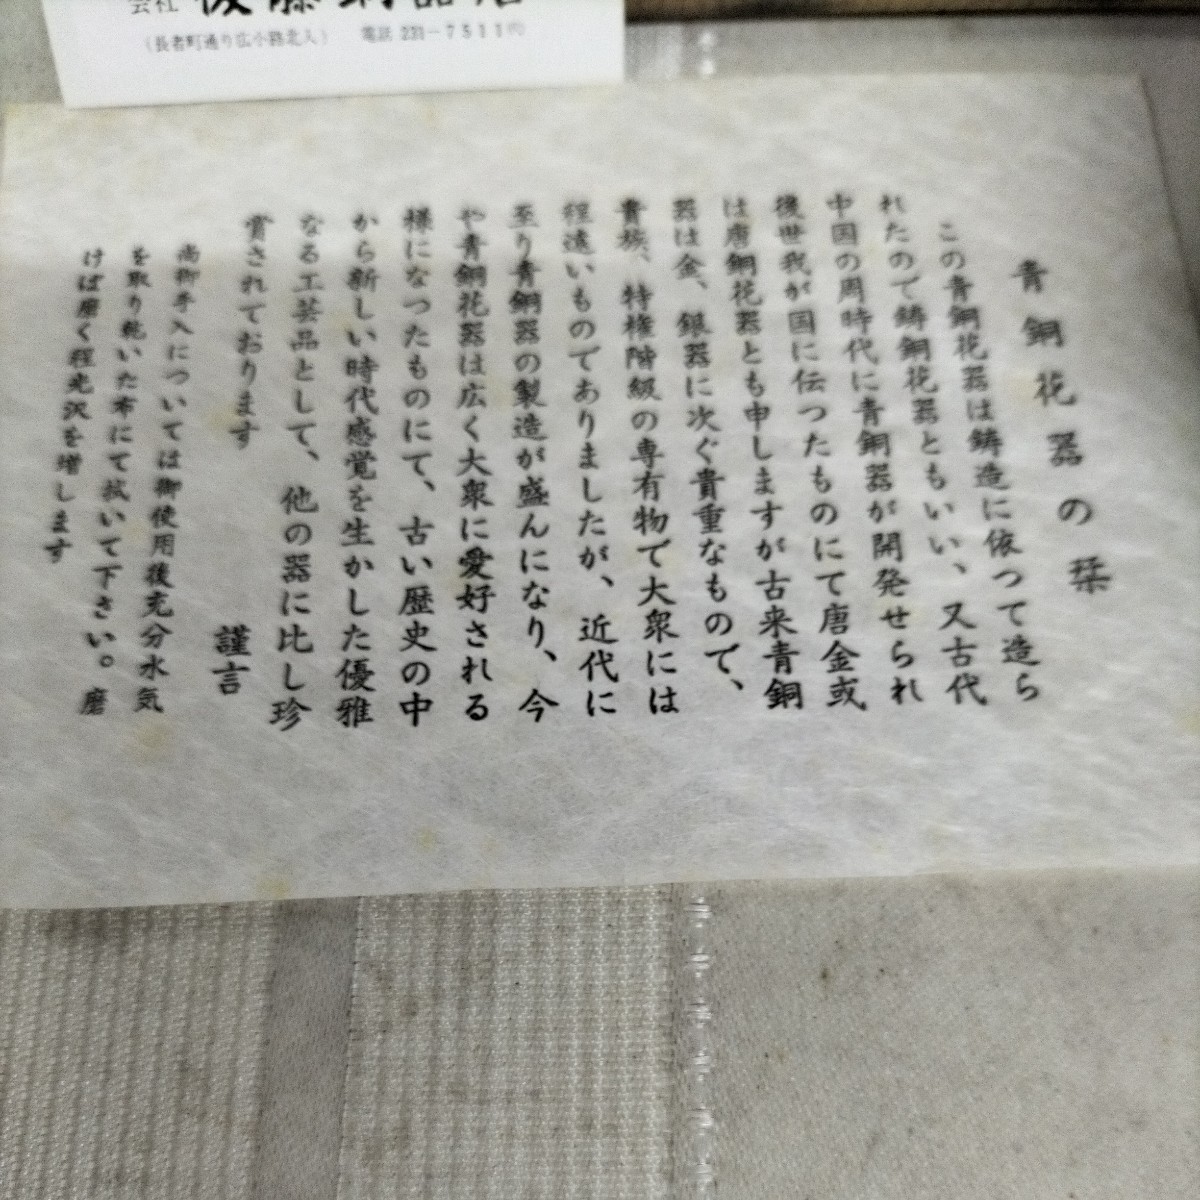 会社 後藤銅器店
(長者町通り広小路北入) 電話 231-7511㈹
青銅花器の栞
この青銅花器は鋳造に依つて造ら
れたので鋳銅花器ともいい、又古代
中国の周時代に青銅器が開発せられ
後世我が国に伝つたものにて唐金或
は唐銅花器とも申しますが古来青銅
器は金、銀器に次ぐ貴重なもので、
貴族、特権階級の専有物で大衆には
程遠いものでありましたが、近代に
至り青銅器の製造が盛んになり、今
や青銅花器は広く大衆に愛好される
様になつたものにて、古い歴史の中
から新しい時代感覚を生かした優雅
なる工芸品として、他の器に比し珍
賞されております
謹言
尚御手入については御使用後充分水気
を取り乾いた布にて拭いて下さい。磨
けば磨く程光沢を増します